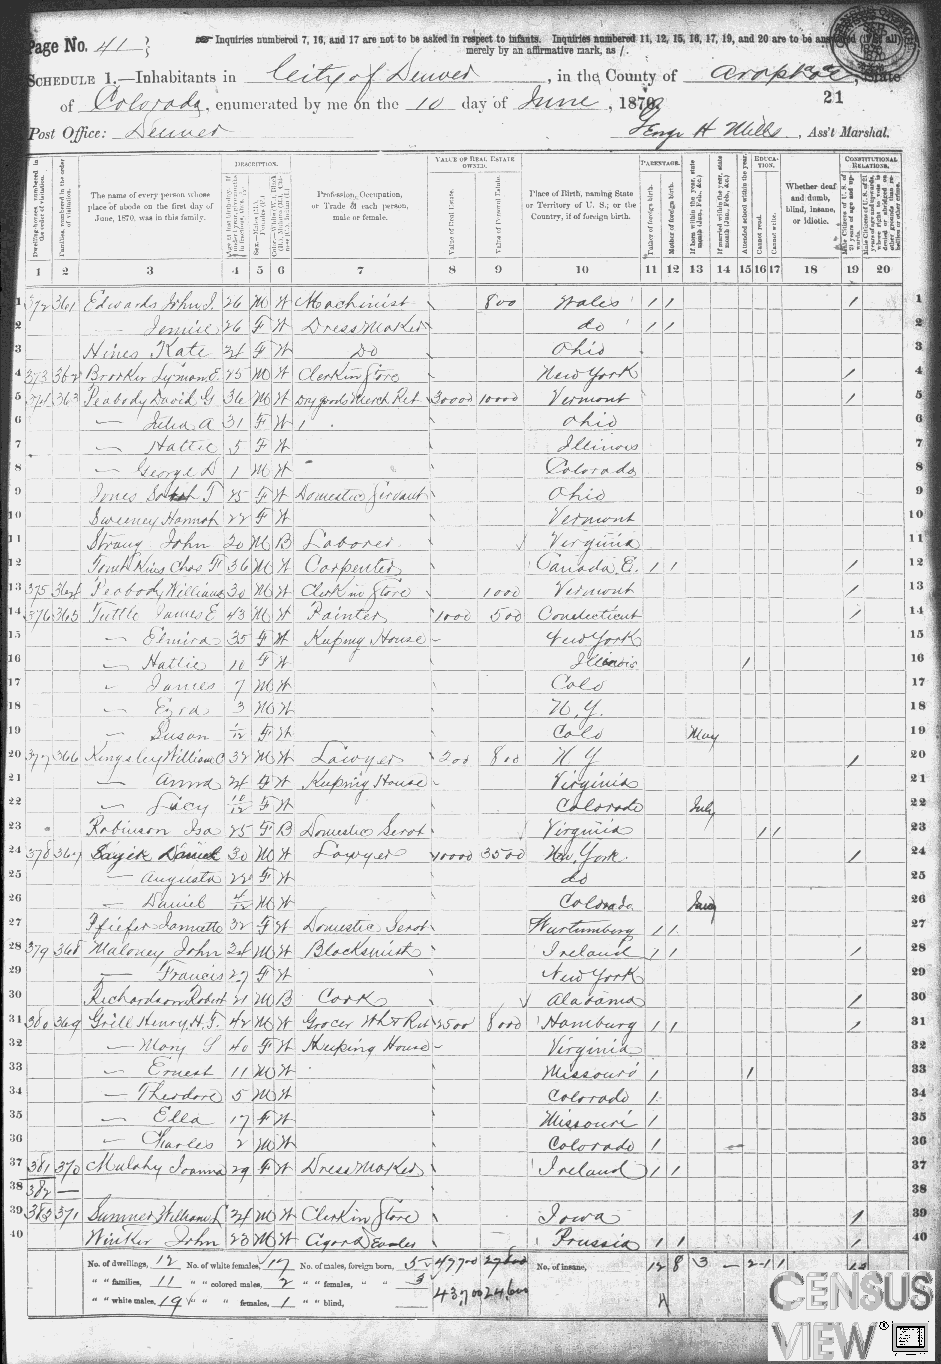 Page No. 41
Inquiries numbered 7, 16, and 17 are not to be asked in respect to infants. Inquiries numbered 11, 12, 15, 16, 17, 19, and 20 are to be answered (if at all)
merely by an affirmative mark, as /.
SCHEDULE 1.—Inhabitants in City of Denver, in the County of Arapahoe, State
of Colorado, enumerated by me on the 10 day of June, 1870.
21
Post Office: Denver
George H Mills, Ass't Marshal.
DESCRIPTION. VALUE OF REAL ESTATE OWNED. PARENTAGE. EDUCATION. CONSTITUTIONAL RELATIONS.
Dwelling-houses, numbered in the order of visitation.
Families, numbered in the order of visitation.
The name of every person whose place of abode on the first day of June, 1870, was in this family.
Profession, Occupation, or Trade of each person, male or female.
Value of Real Estate.
Value of Personal Estate.
Place of Birth, naming State or Territory of U. S.; or the Country, if of foreign birth.
Father of foreign birth.
Mother of foreign birth.
Attended school within the year.
Cannot read.
Cannot write.
Whether deaf and dumb, blind, insane, or idiotic.
1 2 3 4 5 6 7 8 9 10 11 12 13 14 15 16 17 18 19 20
1 372 361 Edwards John J. 26 M W Machinist 800 Wales / / / 1
2 — Jennie 26 F W Dress Maker do / / 2
3 Hines Kate 24 F W Do Ohio 3
4 373 362 Brooker Lyman E. 25 M W Clerk in Store New York / 4
5 374 363 Peabody David G 36 M W Dry goods Merch Ret 30000 10000 Vermont / 5
6 — Julia A 31 F W Ohio 6
7 — Hattie 5 F W Illinois 7
8 — George D 1 M W Colorado 8
9 Jones F 25 F W Domestic Servant Ohio 9
10 Sweeney Hannah 22 F W Vermont 10
11 Strang John 20 M B Laborer Virginia 11
12 Tompkins Chas F 36 M W Carpenter Canada E. / / / 12
13 375 364 Peabody William 30 M W Clerk in Store 1000 Vermont / 13
14 376 365 Tuttle James E 43 M W Painter 1000 500 Connecticut / 14
15 — Elmira 35 F W Keeping House New York 15
16 — Hattie 10 F W Illinois / 16
17 " James 7 M W Colo 17
18 " Ezra 3 M W N. Y. 18
19 — Susan 1/12 F W Colo May 19
20 377 366 Kingsley William C 32 M W Lawyer 200 800 N Y / 20
21 — Anna 24 F W Keeping House Virginia 21
22 — Lucy 10/12 F W Colorado July 22
23 Robinson Isa 25 F B Domestic Servt Virginia / / 23
24 378 367 Sayer Daniel 30 M W Lawyer 10000 3500 New York / 24
25 — Augusta 22 F W do 25
26 — Daniel 4/12 M W Colorado 26
27 Pfiefer Jannette 32 F W Domestic Servt Wurtumburg / / 27
28 379 368 Maloney John 34 M W Blacksmith Ireland / / / 28
29 — Francis 27 F W New York 29
30 Richardson Robert 21 M B Cook Alabama / 30
31 380 369 Grill Henry H. F. 42 M W Grocer Wh & Ret 2500 8000 Hamburg / / / 31
32 — Mary S 40 F W Keeping House Virginia 32
33 — Ernest 11 M W Missouri / / 33
34 — Theodore 5 M W Colorado / 34
35 — Ella 17 F W Missouri / 35
36 — Charles 2 M W Colorado / 36
37 381 370 Mulahy Joanna 29 F W Dress Maker Ireland / / 37
38 382 — 38
39 383 371 Sumner William 24 M W Clerk in Store Iowa / 39
40 Winker John 23 M W Prussia / / / 40
No. of dwellings, 12 No. of white females, 17 No. of males, foreign born, 5 47700 27600 No. of insane, 12 8 3 — 2 1 1
" " families, 11 " " colored males, 2 " " females, " " 3
" " white males, 19 " " " females, 1 " " blind, 43,700 24,600
CENSUS
VIEW®